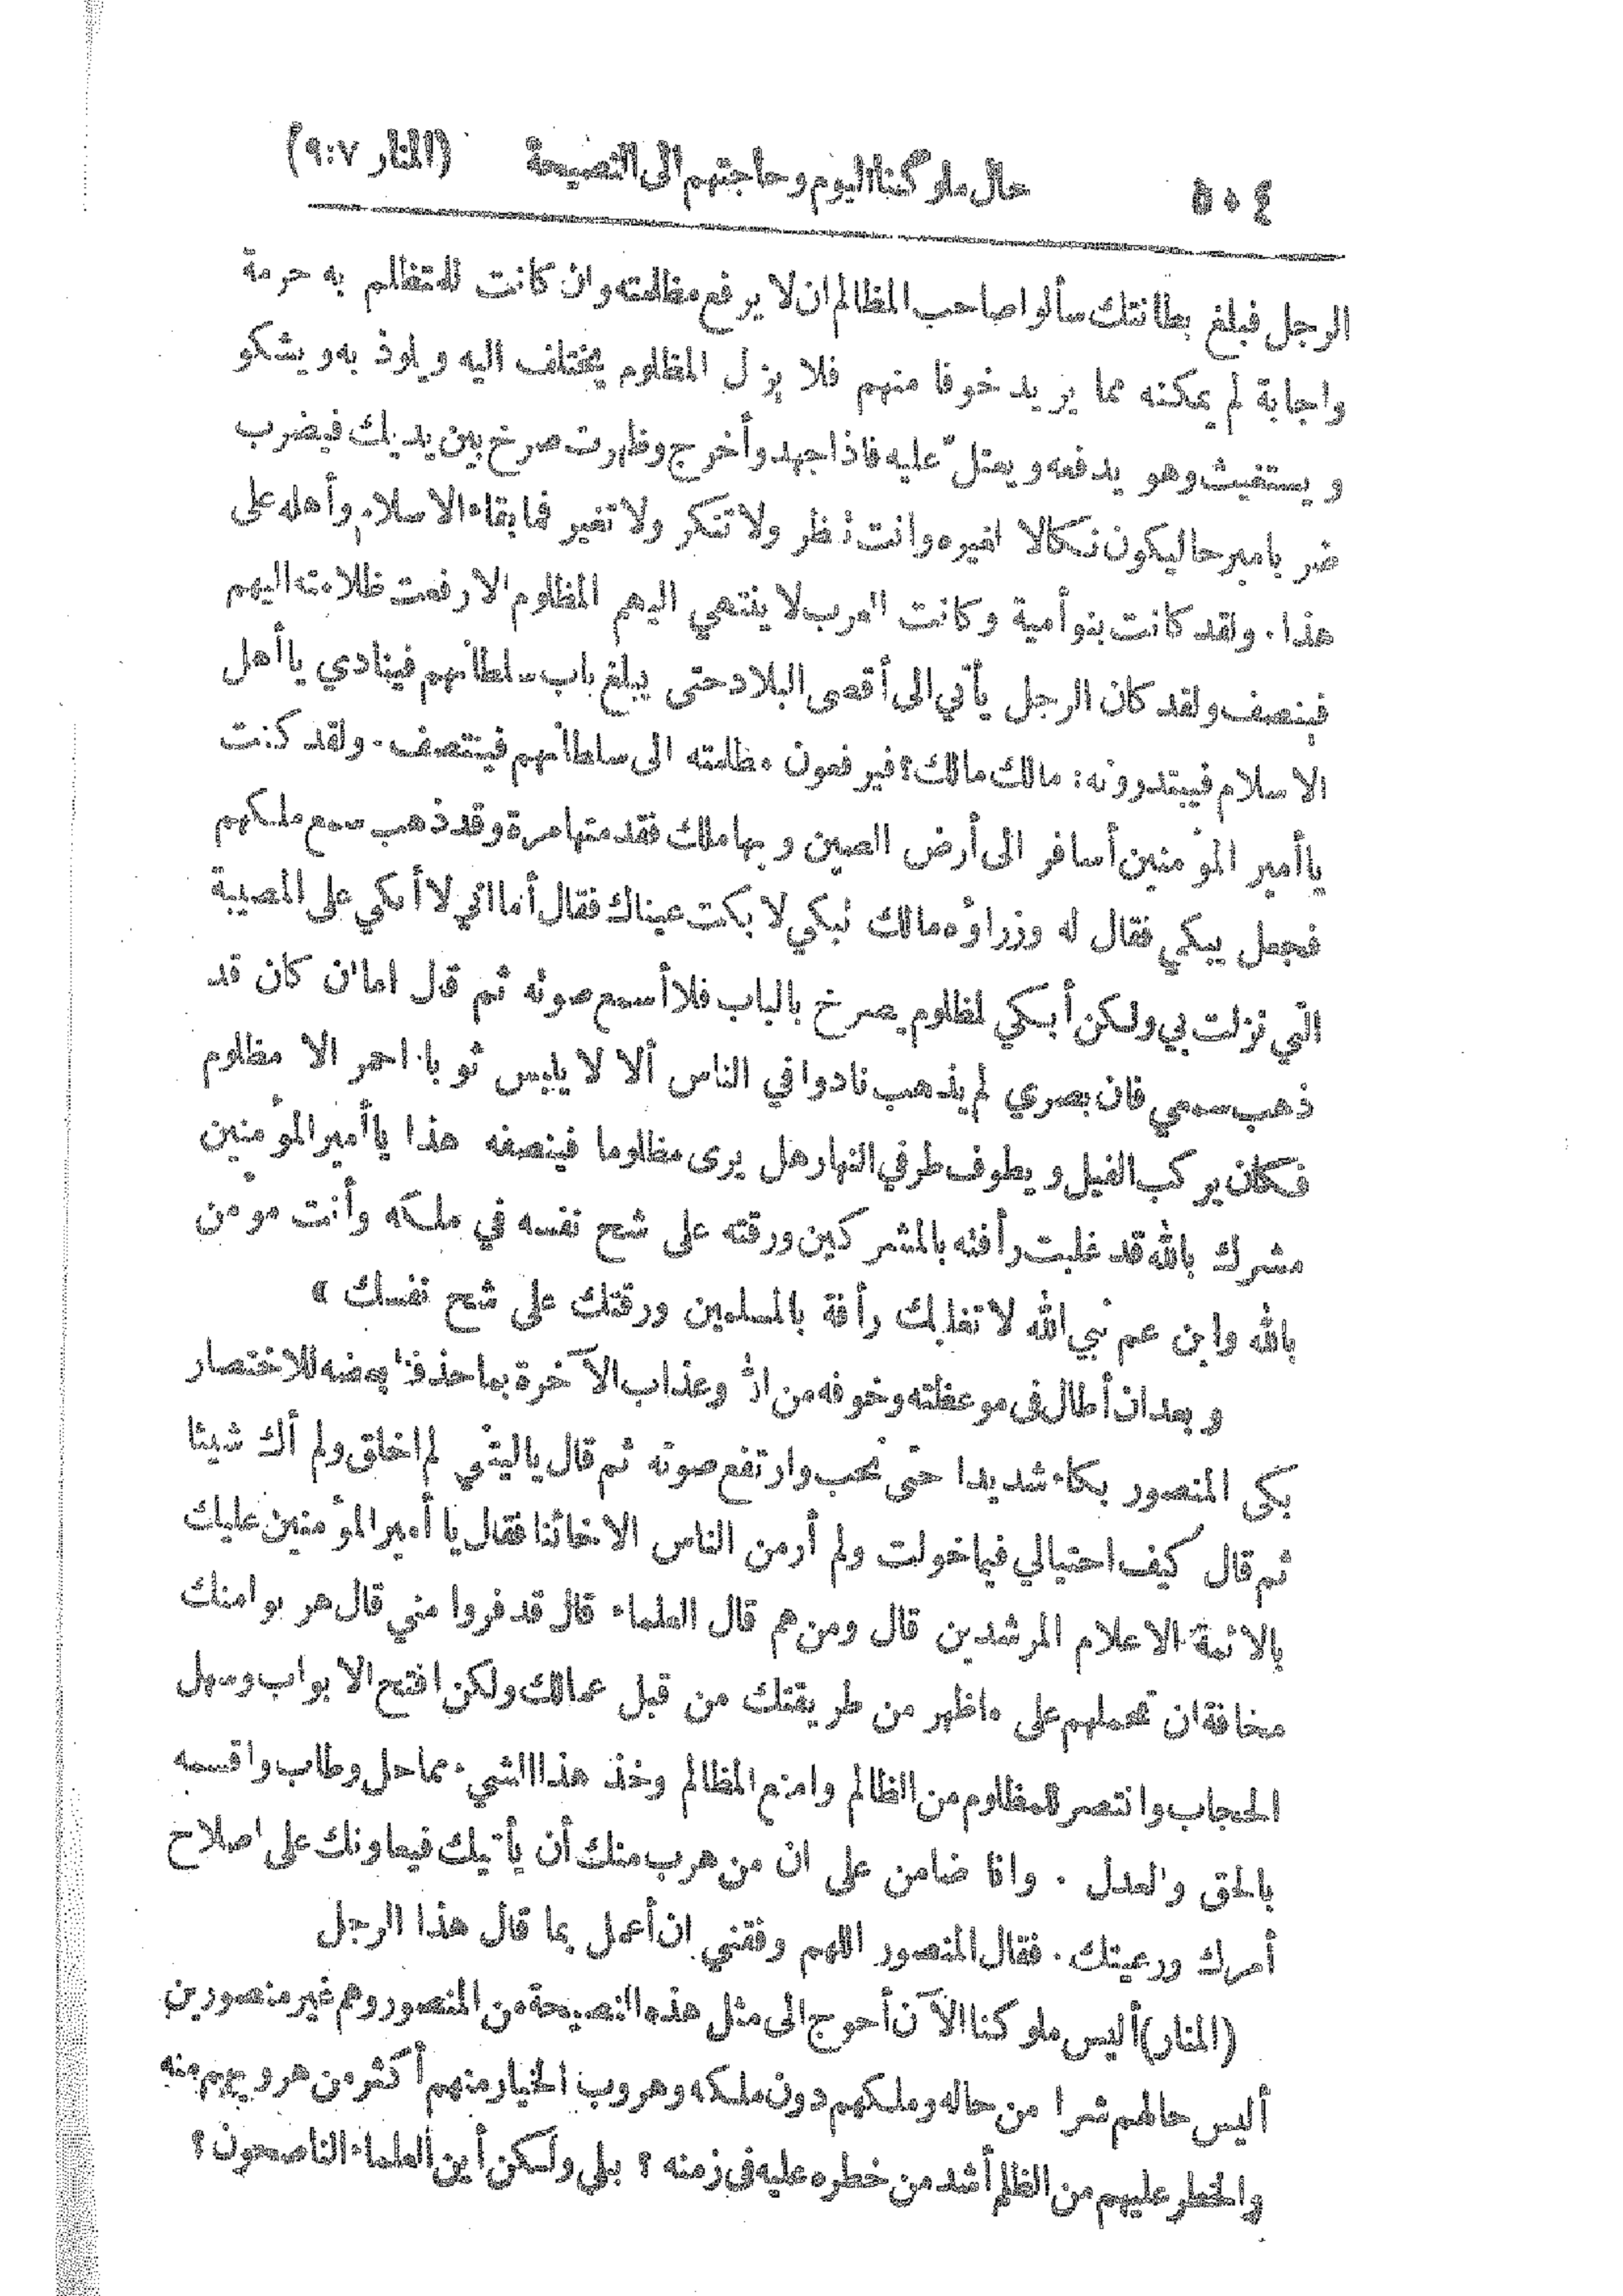 ٥٠٤ حال ملوكنا اليوم وحاجتهم الى النصيحة (المنار ٧:٩)
الرجل فبلغ بطانتك سألوا صاحب المظالم ان لا يرفع مظلمته وان كانت للمتظلم به حرمة
واجابة لم يمكنه مما يريد خوفا منهم فلا يزل المظلوم يختلف اليه ويلوذ به ويشكو
ويستغيث وهو يدفعه ويعتل عليه فاذا اجهد وأخرج وظهرت صرخ بين يديك فيضرب
ضربا مبرحا ليكون نكالا لغيره وانت تنظر ولا تنكر ولا تغير فما بقاء الاسلام وأهله على
هذا . ولقد كانت بنو أمية وكانت العرب لا ينتهي اليهم المظلوم الا رفعت ظلامته اليهم
فينصف ولقد كان الرجل يأتي الى أقصى البلاد حتى يبلغ باب سلطانهم فينادي يا أهل
الاسلام فيبتدرونه : مالك مالك ؟ فيرفعون مظلمته الى سلطانهم فينتصف . ولقد كنت
يا أمير المؤمنين أسافر الى أرض الصين وبها ملك فقدمتها مرة وقد ذهب سمع ملكهم
فجعل يبكي فقال له وزراؤه مالك تبكي لا بكت عيناك فقال أما اني لا أبكي على المصيبة
التي نزلت بي ولكن أبكي لمظلوم يصرخ بالباب فلا أسمع صوته ثم قال اما ان كان قد
ذهب سمعي فان بصري لم يذهب نادوا في الناس ألا لا يلبس ثوبا احمر الا مظلوم
فكان يركب الفيل ويطوف طرفي النهار هل يرى مظلوما فينصفه هذا يا أمير المؤمنين
مشرك بالله قد غلبت رأفته بالمشركين ورقته على شح نفسه في ملكه وأنت مؤمن
بالله وابن عم نبي الله لا تغلبك رأفة بالمسلمين ورقتك على شح نفسك »
وبعد ان أطال في موعظته وخوفه من الله وعذاب الآخرة بما حذفنا بعضه للاختصار
بكى المنصور بكاء شديدا حتى نحب وارتفع صوته ثم قال يا ليتني لم اخلق ولم أك شيئا
ثم قال كيف احتيالي فيما خولت ولم أر من الناس الا خائنا فقال يا أمير المؤمنين عليك
بالائمة الاعلام المرشدين قال ومن هم قال العلماء قال قد فروا مني قال هربوا منك
مخافة ان تحملهم على ما ظهر من طريقتك من قبل عمالك ولكن افتح الابواب وسهل
الحجاب وانتصر للمظلوم من الظالم وامنع المظالم وخذ هذا الشيء مما حل وطاب واقسمه
بالحق والعدل . وانا ضامن على ان من هرب منك أن يأتيك فيعاونك على اصلاح
أمرك ورعيتك . فقال المنصور اللهم وفقني ان أعمل بما قال هذا الرجل
(المنار) أليس ملوكنا الآن أحوج الى مثل هذه النصيحة من المنصور وهم غير منصورين
أليس حالهم شرا من حاله وملكهم دون ملكه وهروب الخيار منهم أكثر من هروبهم منه
والخطر عليهم من الظلم أشد من خطره عليه في زمنه ؟ بلى ولكن أين العلماء الناصحون ؟